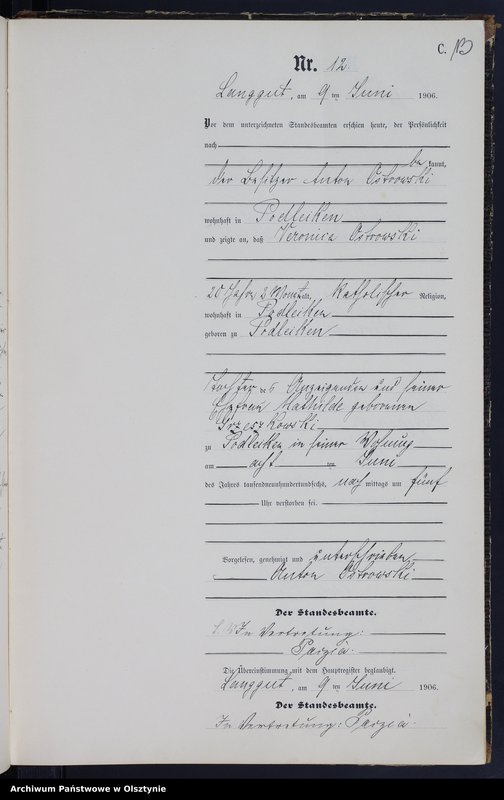 C.
B
Nr. 12
Langgut, am 9 ten Juni 1906.
Vor dem unterzeichneten Standesbeamten erschien heute, der Persönlichkeit
nach
be kannt,
der Besitzer Anton Ostrowski
wohnhaft in Podleiken
und zeigte an, daß Veronica Ostrowski
20 Jahre 2 Monat alt, katholischer Religion,
wohnhaft in Podleiken
geboren zu Podleiken
Tochter des Anzeigenden und seiner
Ehefrau Mathilde geborenen
zu Podleiken in seiner Wohnung
am acht ten Juni
des Jahres tausendneunhundertundsechs, nach mittags um fünf
Uhr verstorben sei.
Vorgelesen, genehmigt und unterschrieben
Anton Ostrowski
Der Standesbeamte.
In Vertretung:
Die Übereinstimmung mit dem Hauptregister beglaubigt.
Langgut, am 9 ten Juni 1906.
Der Standesbeamte.
In Vertretung:
Archiwum Państwowe w Olsztynie